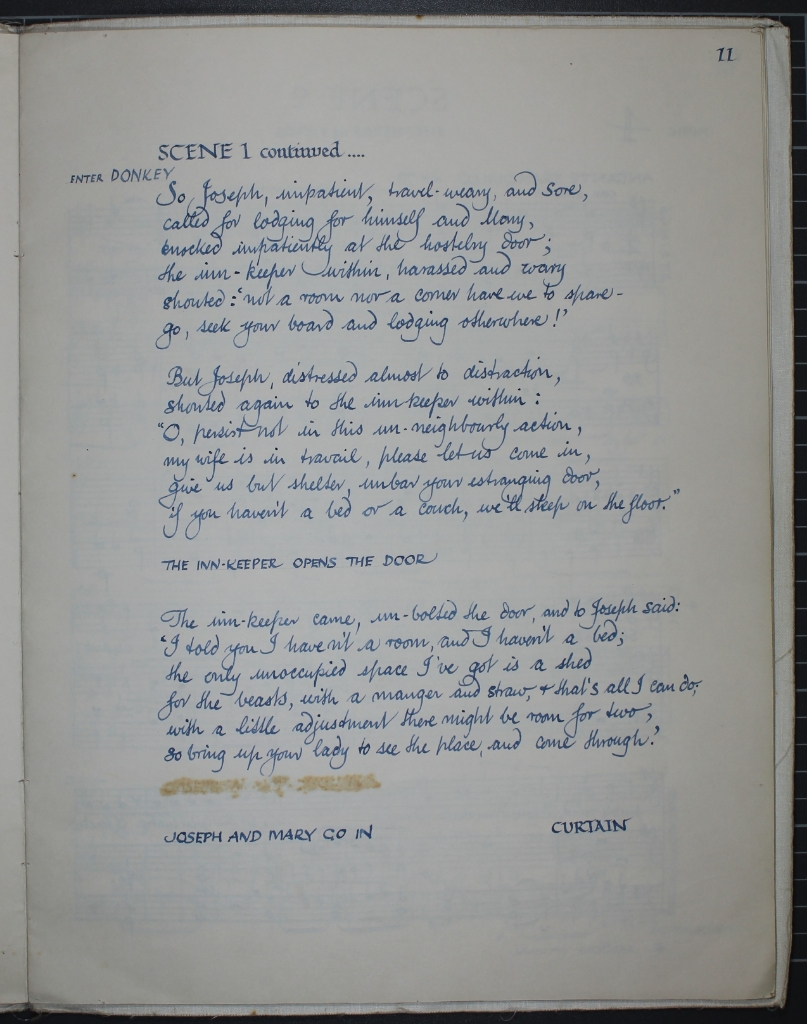 11
SCENE 1 continued ....
ENTER DONKEY
So, Joseph, impatient, travel-weary, and sore,
called for lodging for himself and Mary,
knocked impatiently at the hostelry door;
the inn-keeper within, harassed and wary
shouted: "not a room nor a corner have we to spare -
go, seek your board and lodging otherwhere!"
But Joseph, distressed almost to distraction,
shouted again to the inn-keeper within:
"O, persist not in this un-neighbourly action,
my wife is in travail, please let us come in,
give us but shelter, unbar your estranging door,
if you haven't a bed or a couch, we'll sleep on the floor."
THE INN-KEEPER OPENS THE DOOR
The inn-keeper came, un-bolted the door, and to Joseph said:
"I told you I haven't a room, and I haven't a bed;
the only unoccupied space I've got is a shed
for the beasts, with a manger and straw, & that's all I can do;
with a little adjustment there might be room for two,
so bring up your lady to see the place, and come through."
JOSEPH AND MARY GO IN
CURTAIN